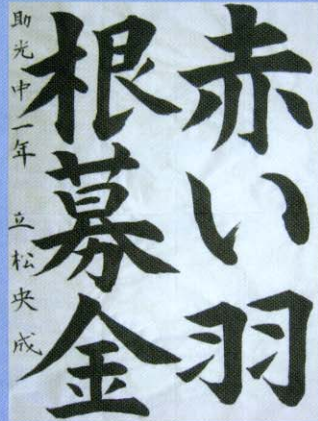 赤い羽
根募金
助光中一年 立松央成